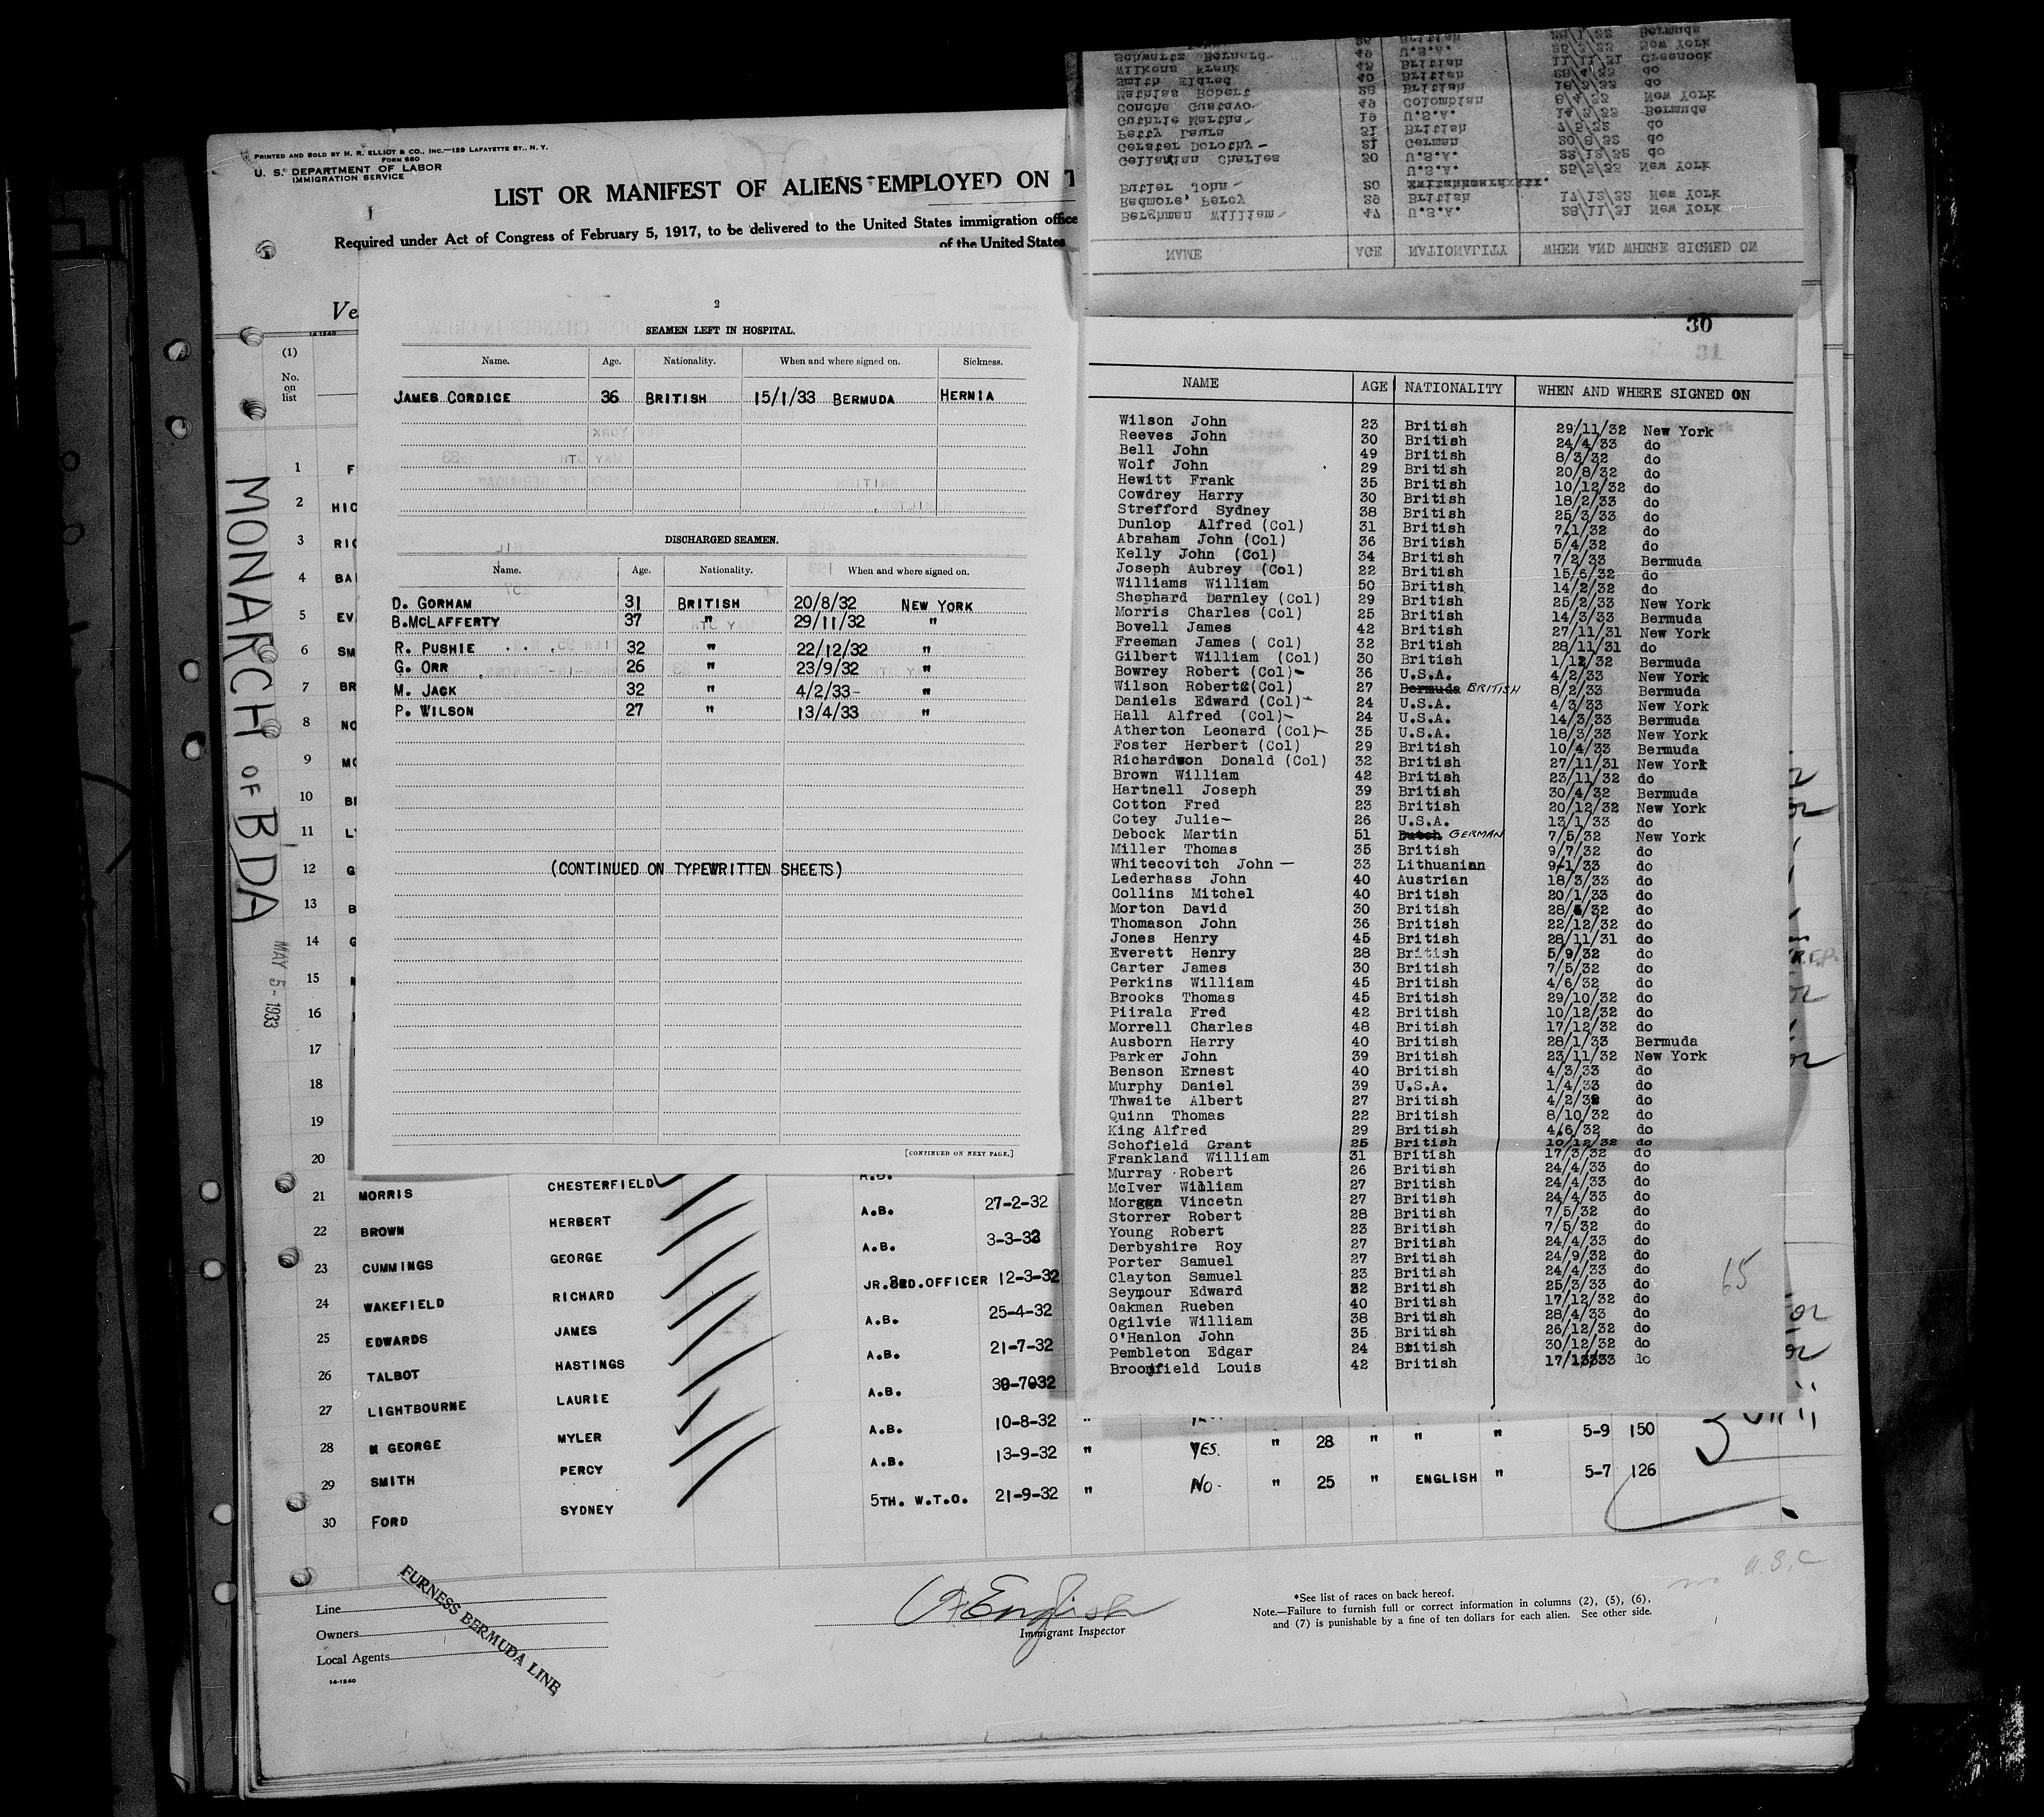 PRINTED AND SOLD BY H. R. ELLIOT & CO., INC.—129 LAFAYETTE ST., N. Y.
FORM 680
U. S. DEPARTMENT OF LABOR
IMMIGRATION SERVICE
LIST OR MANIFEST OF ALIENS EMPLOYED ON T
Required under Act of Congress of February 5, 1917, to be delivered to the United States immigration office
of the United States
Ve
14-1240
(1)
No.
on
list
MONARCH OF BDA
MAY 5-1933
1 F
2 HIC
3 RIC
4 BA
5 EV
6 SM
7 BR
8 NO
9 MC
10
11 LY
12 G
13 B
14 G
15
16
17
18
19
20
2
SEAMEN LEFT IN HOSPITAL.
Name. Age. Nationality. When and where signed on. Sickness.
JAMES CORDICE 36 BRITISH 15/1/33 BERMUDA HERNIA
DISCHARGED SEAMEN.
Name. Age. Nationality. When and where signed on.
D. GORHAM 31 BRITISH 20/8/32 NEW YORK
B.McLAFFERTY 37 " 29/11/32 "
R. PUSHIE 32 " 22/12/32 "
G. ORR 26 " 23/9/32 "
M. JACK 32 " 4/2/33- "
P. WILSON 27 " 13/4/33 "
(CONTINUED ON TYPEWRITTEN SHEETS)
[CONTINUED ON NEXT PAGE.]
Schwartz Bernard 49 U.S.A. 25/3/33 New York
Wilkens Frank 45 British 11/11/31 Greenock
Smith Eldred 40 British 29/4/33 do
Mathias Robert 28 British 18/3/33 do
Concha Gustavo 49 Colombian 8/4/33 New York
Guthrie Martha 19 U.S.A. 14/3/33 Bermuda
Petty Laura 31 British 7/5/32 do
Gerster Dorothy 21 German 20/8/32 do
Charles 30 U.S.A. 22/12/32 do
U.S.A. 25/3/33 New York
Butler John 20
Redmore, Percy 29 British 17/12/32 New York
Berghman William 47 U.S.A. 28/11/31 New York
NAME AGE NATIONALITY WHEN AND WHERE SIGNED ON
30
31
NAME AGE NATIONALITY WHEN AND WHERE SIGNED ON
Wilson John 23 British 29/11/32 New York
Reeves John 30 British 24/4/33 do
Bell John 49 British 8/3/32 do
Wolf John 29 British 20/8/32 do
Hewitt Frank 35 British 10/12/32 do
Cowdrey Harry 30 British 18/2/33 do
Strefford Sydney 38 British 25/3/33 do
Dunlop Alfred (Col) 31 British 7/1/32 do
Abraham John (Col) 36 British 5/4/32 do
Kelly John (Col) 34 British 7/2/33 Bermuda
Joseph Aubrey (Col) 22 British 15/6/32 do
Williams William 50 British 14/2/32 do
Shephard Darnley (Col) 29 British 25/2/33 New York
Morris Charles (Col) 25 British 14/3/33 Bermuda
Bovell James 42 British 27/11/31 New York
Freeman James ( Col) 32 British 28/11/31 do
Gilbert William (Col) 30 British 1/12/32 Bermuda
Bowrey Robert (Col) 36 U.S.A. 4/2/33 New York
Wilson Robert (Col) 27 Bermuda BRITISH 8/2/33 Bermuda
Daniels Edward (Col) 24 U.S.A. 4/3/33 New York
Hall Alfred (Col) 24 U.S.A. 14/3/33 Bermuda
Atherton Leonard (Col) 35 U.S.A. 18/3/33 New York
Foster Herbert (Col) 29 British 10/4/33 Bermuda
Richardson Donald (Col) 32 British 27/11/31 New York
Brown William 42 British 23/11/32 do
Hartnell Joseph 39 British 30/4/32 Bermuda
Cotton Fred 23 British 20/12/32 New York
Cotey Julie— 26 U.S.A. 13/1/33 do
Debock Martin 51 Dutch GERMAN 7/5/32 New York
Miller Thomas 35 British 9/7/32 do
Whitecovitch John — 33 Lithuanian 9/1/33 do
Lederhass John 40 Austrian 18/3/33 do
Collins Mitchel 40 British 20/1/33 do
Morton David 30 British 28/5/32 do
Thomason John 36 British 22/12/32 do
Jones Henry 45 British 28/11/31 do
Everett Henry 28 British 5/9/32 do
Carter James 30 British 7/5/32 do
Perkins William 45 British 4/6/32 do
Brooks Thomas 45 British 29/10/32 do
Piirala Fred 42 British 10/12/32 do
Morrell Charles 48 British 17/12/32 do
Ausborn Harry 40 British 28/1/33 Bermuda
Parker John 39 British 23/11/32 New York
Benson Ernest 40 British 4/3/33 do
Murphy Daniel 39 U.S.A. 1/4/33 do
Thwaite Albert 27 British 4/2/32 do
Quinn Thomas 22 British 8/10/32 do
King Alfred 29 British 4/6/32 do
Schofield Grant 25 British 10/12/32 do
Frankland William 31 British 17/3/32 do
Murray Robert 26 British 24/4/33 do
McIver William 27 British 24/4/33 do
Morgan Vincetn 27 British 24/4/33 do
Storrer Robert 28 British 7/5/32 do
Young Robert 23 British 7/5/32 do
Derbyshire Roy 27 British 24/4/33 do
Porter Samuel 27 British 24/9/32 do
Clayton Samuel 23 British 24/4/33 do
Seymour Edward 32 British 25/3/33 do
Oakman Rueben 40 British 17/12/32 do
Ogilvie William 38 British 28/4/33 do
O'Hanlon John 35 British 26/12/32 do
Pembleton Edgar 24 British 30/12/32 do
Broomfield Louis 42 British do
65
21 MORRIS CHESTERFIELD A.B. 27-2-32
22 BROWN HERBERT A.B. 3-3-32
23 CUMMINGS GEORGE JR.3RD.OFFICER 12-3-32
24 WAKEFIELD RICHARD A.B. 25-4-32
25 EDWARDS JAMES A.B. 21-7-32
26 TALBOT HASTINGS A.B. 30-7-32
27 LIGHTBOURNE LAURIE A.B. 10-8-32
28 GEORGE MYLER A.B. 13-9-32 " YES. " 28 " " " 5-9 150
29 SMITH PERCY 5TH. W.T.O. 21-9-32 " No. " 25 " ENGLISH " 5-7 126
30 FORD SYDNEY
Line
Owners
Local Agents
14-1240
FURNESS BERMUDA LINE
English
Immigrant Inspector
*See list of races on back hereof.
Note.—Failure to furnish full or correct information in columns (2), (5), (6),
and (7) is punishable by a fine of ten dollars for each alien. See other side.
no U.S.C